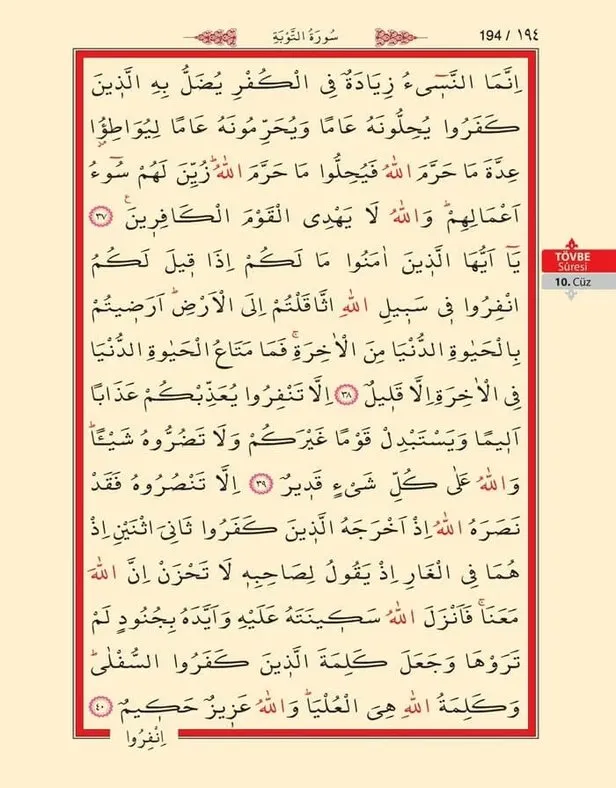 سُورَةُ التَّوْبَةِ
194 / ١٩٤
اِنَّمَا النَّسٖٓيءُ زِيَادَةٌ فِي الْكُفْرِ يُضَلُّ بِهِ الَّذٖينَ
كَفَرُوا يُحِلُّونَهُ عَامًا وَيُحَرِّمُونَهُ عَامًا لِيُوَاطِؤُ۫ا
عِدَّةَ مَا حَرَّمَ اللّٰهُ فَيُحِلُّوا مَا حَرَّمَ اللّٰهُؕ زُيِّنَ لَهُمْ سُٓوءُ
اَعْمَالِهِمْؕ وَاللّٰهُ لَا يَهْدِي الْقَوْمَ الْكَافِرٖينَۚ ٣٧
يَٓا اَيُّهَا الَّذٖينَ اٰمَنُوا مَا لَكُمْ اِذَا قٖيلَ لَكُمُ
انْفِرُوا فٖي سَبٖيلِ اللّٰهِ اثَّاقَلْتُمْ اِلَى الْاَرْضِؕ اَرَضٖيتُمْ
بِالْحَيٰوةِ الدُّنْيَا مِنَ الْاٰخِرَةِۚ فَمَا مَتَاعُ الْحَيٰوةِ الدُّنْيَا
فِي الْاٰخِرَةِ اِلَّا قَلٖيلٌ ٣٨ اِلَّا تَنْفِرُوا يُعَذِّبْكُمْ عَذَابًا
اَلٖيمًا وَيَسْتَبْدِلْ قَوْمًا غَيْرَكُمْ وَلَا تَضُرُّوهُ شَيْـًٔاؕ
وَاللّٰهُ عَلٰى كُلِّ شَيْءٍ قَدٖيرٌ ٣٩ اِلَّا تَنْصُرُوهُ فَقَدْ
نَصَرَهُ اللّٰهُ اِذْ اَخْرَجَهُ الَّذٖينَ كَفَرُوا ثَانِيَ اثْنَيْنِ اِذْ
هُمَا فِي الْغَارِ اِذْ يَقُولُ لِصَاحِبِهٖ لَا تَحْزَنْ اِنَّ اللّٰهَ
مَعَنَاۚ فَاَنْزَلَ اللّٰهُ سَكٖينَتَهُ عَلَيْهِ وَاَيَّدَهُ بِجُنُودٍ لَمْ
تَرَوْهَا وَجَعَلَ كَلِمَةَ الَّذٖينَ كَفَرُوا السُّفْلٰىؕ
وَكَلِمَةُ اللّٰهِ هِيَ الْعُلْيَاؕ وَاللّٰهُ عَزٖيزٌ حَكٖيمٌ ٤٠
اِنْفِرُوا
TÖVBE
Sûresi
10. Cüz